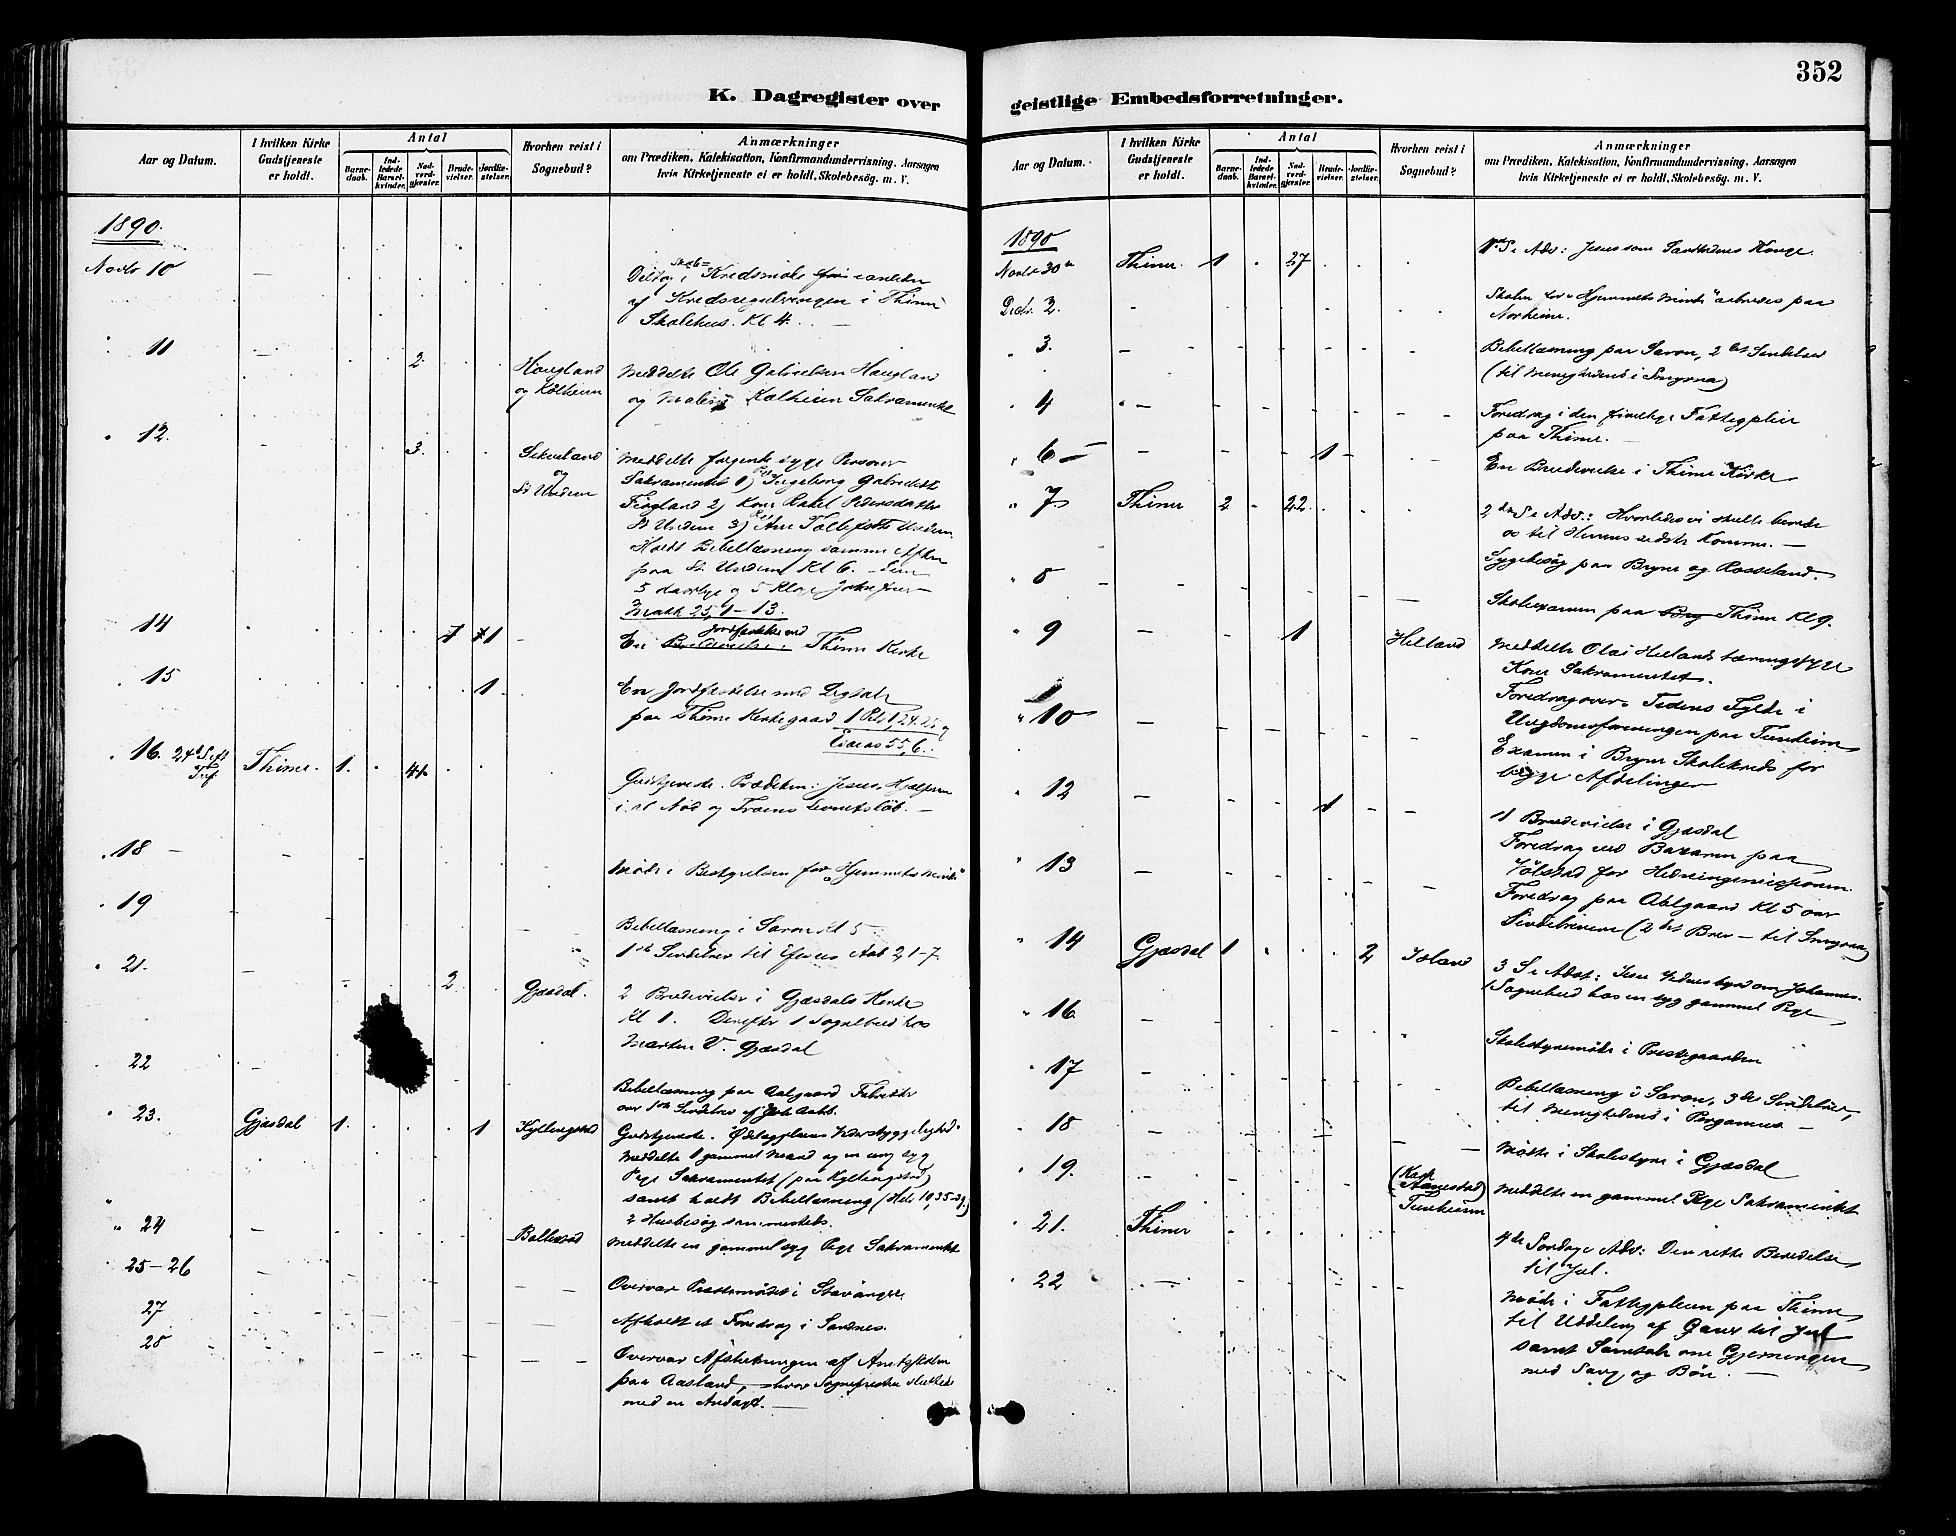 352
K. Dagregister over
geistlige Embedsforretninger.
Aar og Datum.
I hvilken Kirke
Gudstjeneste
er holdt.
Antal
Barne-
daab.
Ind-
ledede
Barsel-
kvinder.
Nad-
verd-
gjester.
Brude-
vielser.
Jordfæ-
stelser.
Hvorhen reist i
Sognebud?
Anmærkninger
om Prædiken, Katekisation, Konfirmandundervisning, Aarsagen
hvis Kirketjeneste ei er holdt, Skolebesög, m. V.
1890.
Novbr 10
Deltog i Kredsmöde
af Kredsreguleringen i Thime
Skolehus. Kl 4.
11 2. Haugland meddelte Ole Gabrielsen Haugland
og Kalheim og Kalheim Sakramentet
12. 3. meddelte følgende syge Personer
og Sakramentet 1) Ingeborg
St Undem Frøgland 2) Kone Rakel Pedersdatter
St Undem 3) Ane Undem.
Holdt Bibellæsning samme Aften
paa St. Undem Kl 6.
5 daarlige og 5 kloge Jomfruer
Math 25, 1-13.
14 1 En Jordfæstelse ved Thime Kirke
15 1 En Jordfæstelse med Ligtale
paa Thime Kirkegaard 1 Pet 1, 24.25 og
Esaias 55, 6.
16. 24 S. eft Thime. 1. Gudstjeneste. Prædiken: Jesus Hjælperen
Tref. i al Nød og Troens Levnetsløb.
18 Møde i Bestyrelsen for "Hjemmets Minde"
19 Bibellæsning i Saron Kl 5
1ste Sendebrev til Efesus Aab 2, 1-7.
21. 2 Gjesdal. 2 Brudevielser i Gjesdals Kirke
Kl 1. Derefter 1 Sognebud hos
Morten V. Gjesdal
22 Bibellæsning paa Aalgaard Fabrikker
over 1ste Sendebrev af Joh Aabb.
23. Gjesdal 1. 1 Kyllingstad Gudstjeneste. Ødelæggelsens Vederstyggelighed.
meddelte 1 gammel Mand og en ung syg
Pige Sakramentet (paa Kyllingstad)
samt holdt Bibellæsning (Heb 10, 35-39)
2 Husbesøg sammesteds.
24 meddelte en gammel syg Pige Sakramentet
25-26 Overvar Prestemødet i Stavanger
27 Afholdt et Foredrag i Sandnes.
28 Overvar Afslutningen af Amtsskolen
paa Aasland, hvor Sognepresten sluttede
med en Andagt.
Aar og Datum.
I hvilken Kirke
Gudstjeneste
er holdt.
Antal
Barne-
daab.
Ind-
ledede
Barsel-
kvinder.
Nad-
verd-
gjester.
Brude-
vielser.
Jordfæ-
stelser.
Hvorhen reist i
Sognebud?
Anmærkninger
om Prædiken, Katekisation, Konfirmandundervisning, Aarsagen
hvis Kirketjeneste ei er holdt, Skolebesög, m. V.
1890
Novbr 30te Thime. 1 27 1ste S. i Adv: Jesus som Sandhedens Konge.
Decbr. 2. Skolen for "Hjemmets Minde" aabnedes paa
Norheim.
3. Bibellæsning paa Saron, 2det Sendebrev
(til Menigheden i Smyrna)
4 Foredrag i den frivillige Fattigpleie
paa Thime.
6 1 En Brudevielse i Thime Kirke
7 Thime 2 22 2den S. i Adv.: Hvorledes vi skulle berede
os til Herrens sidste Komme.
8 Sygebesøg paa Bryne og Rosseland.
Skoleexamen paa Thime Kl 9.
9 1 Helland meddelte Olai Hellands tæringssyge
Kone Sakramentet.
10 Foredrag over Tidens Fylde i
Ungdomsforeningen paa Tunheim
Examen i Bryne Skolekreds for
begge Afdelinger
12 1 1 Brudevielse i Gjesdal
Foredrag ved Basaren paa
13 Vølstad for Hedningemissionen.
Foredrag paa Aalgaard Kl 5 over
Sendebrevene (2det Brev — til Smyrna)
14 Gjesdal 1 2 3 S. i Advt: Jesu Vidnesbyrd om Johannes.
Sognebud hos en syg gammel Pige
16. Skolestyremøde i Prestegaarden
17 Bibellæsning i Saron, 3die Sendebrev,
til Menigheden i Pergamus.
18 Møde i Skolestyre i Gjesdal
19. Tunheim meddelte en gammel Pige Sakramentet
21. Thime 4de Søndag i Adv: Den rette Beredelse
til Jul.
22 Møde i Fattigpleien paa Thime
til Uddeling af Gaver til Jul
samt Samtale om Gjerningen
med Sang og Bøn.